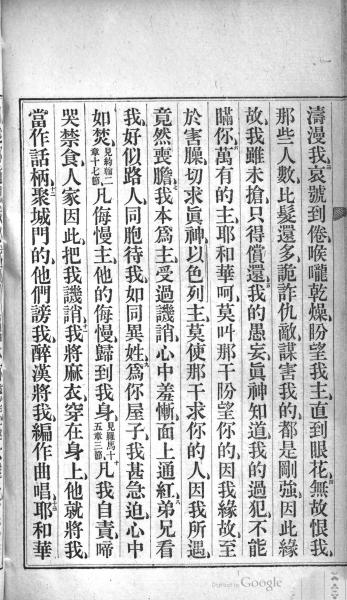 濤漫我哀號到倦喉嚨乾燥盼望我主直到眼花無故恨我
那些人數比髮還多詭詐仇敵謀害我的都是剛強因此緣
故我雖未搶只得償還我的愚妄眞神知道我的過犯不能
瞞你萬有的主耶和華呵莫叫那干盼望你的因我緣故至
於害臊切求眞神以色列主莫使那干求你的人因我所遇
竟然喪膽我本爲主受過譏誚心中羞慚面上通紅弟兄看
我好似路人同胞待我如同異姓爲你屋子我甚急迫心中
如焚見約翰二章十七節凡侮慢主他的侮慢歸到我身見羅馬十五章三節凡我自責啼
哭禁食人家因此把我譏誚我將麻衣穿在身上他就將我
當作話柄聚城門的他們謗我醉漢將我編作曲唱耶和華
Digitized by Google